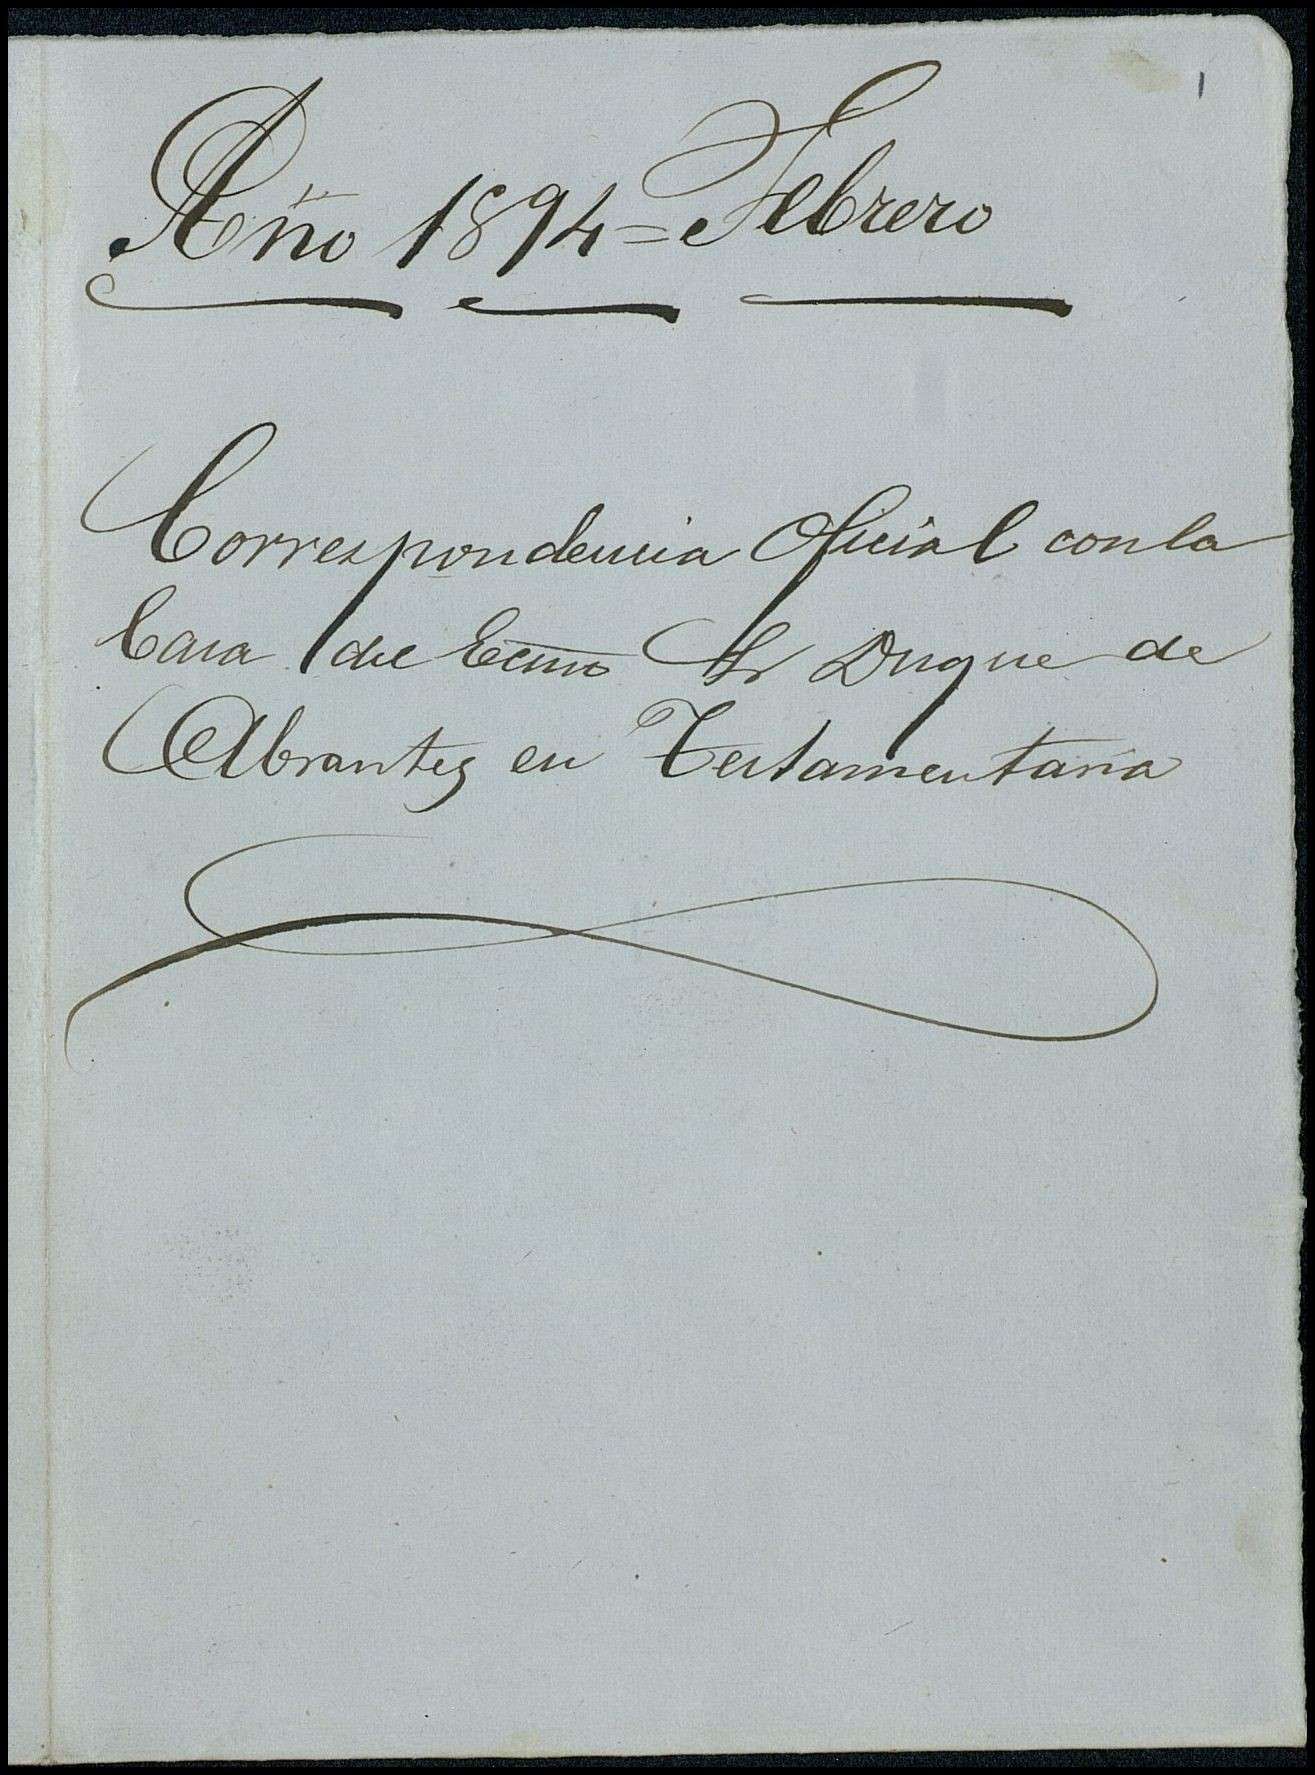 1
Año 1894 = Febrero
Correspondencia Oficial con la
Casa del Ecmo Sr Duque de
Abrantes en Testamentaria